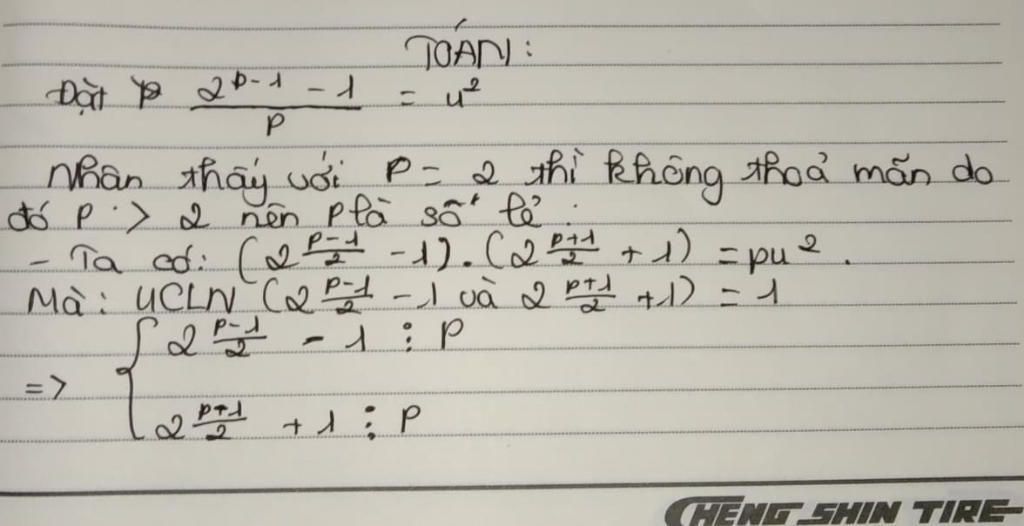 TOÁN:
Đặt p 2^{p-1} - 1 / p = u²
Nhân thấy với p = 2 thì không thoả mãn do
đó p > 2 nên p là số lẻ.
- Ta có: (2^{\frac{p-1}{2}} - 1).(2^{\frac{p+1}{2}} + 1) = pu².
Mà: ƯCLN (2^{\frac{p-1}{2}} - 1 và 2^{\frac{p+1}{2}} + 1) = 1
=> { 2^{\frac{p-1}{2}} - 1 ⋮ p
2^{\frac{p+1}{2}} + 1 ⋮ p
CHENG SHIN TIRE